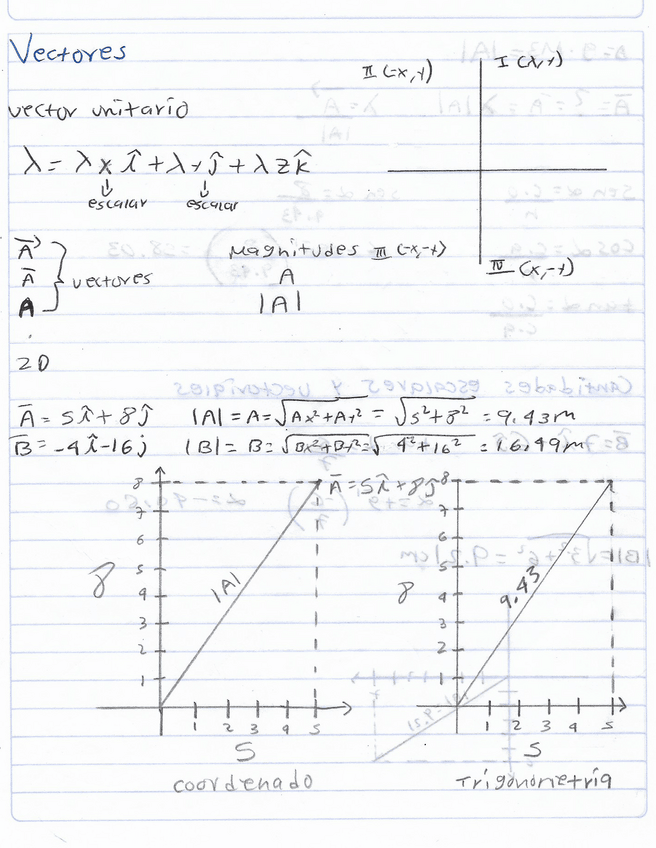 Vectores
II (-x, y)
I (x, y)
vector unitario
λ = λ x î + λ y ĵ + λ z k̂
escalar escalar
A⃗
Ā
A
} vectores
Magnitudes
A
|A|
III (-x, -y)
IV (x, -y)
20
Ā = 5î + 8ĵ |A| = A = √Ax² + Ay² = √5² + 8² = 9.43 m
B̄ = -4î - 16j |B| = B = √Bx² + By² = √4² + 16² = 16.49 m
Ā = 5î + 8ĵ
8
7
6
5
4
3
2
1
8
|A|
1 2 3 4 5
5
coordenado
8
7
6
5
4
3
2
1
8
9.43
1 2 3 4 5
5
Trigonometria